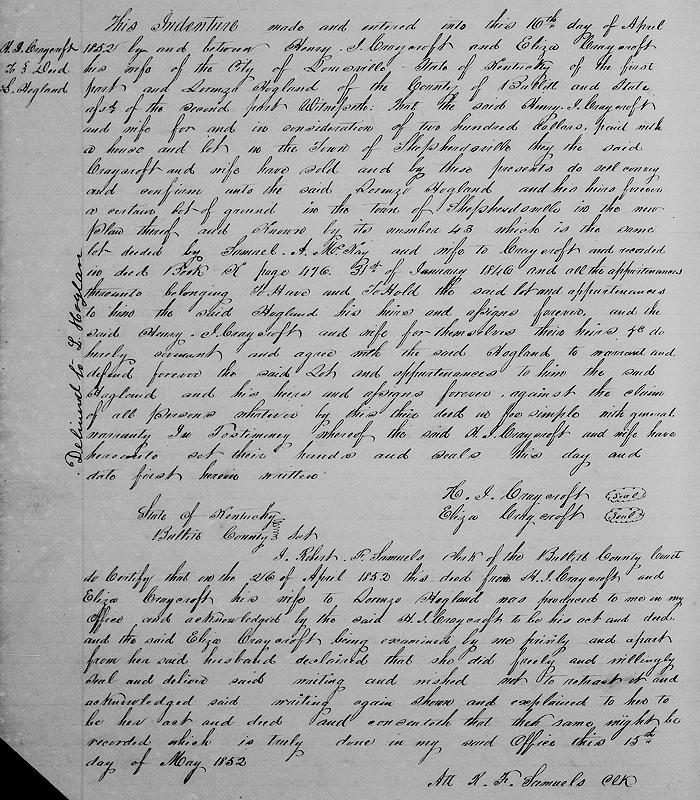 This Indenture made and entered into this 16th day of April
H. I. Craycroft
To } Deed
L. Hogland
1852 by and between Henry. I. Craycroft and Eliza Craycroft
his wife of the City of Louisville State of Kentucky of the first
part and Lorenzo Hogland of the County of Bullitt and State
afsd of the second part Witnesseth: that the said Henry. I. Craycroft
and wife for and in consideration of two hundred dollars, paid with
a house and lot in the Town of Shepherdsville they the said
Craycroft and wife have sold and by these presents do sell convey
and confirm unto the said Lorenzo Hogland and his heirs forever
a certain lot of ground in the town of Shepherdsville in the new
plan thereof and Known by its number 43 which is the same
lot deeded by Samuel. A. McKay and wife to Craycroft and recorded
in deed Book K page 476. 31st of January 1846 and all the appurtenances
thereunto belonging To Have and To Hold the said lot and appurtenances
to him the said Hogland his heirs and assigns forever, and the
said Henry. I. Craycroft and wife for themselves their heirs &c do
hereby covenant and agree with the said Hogland to warrant and
defend forever the said Lot and appurtenances to him the said
Hogland and his heirs and assigns forever against the claim
of all persons whatever by this their deed in fee simple with general
warranty In Testimony whereof the said H. I. Craycroft and wife have
hereunto set their hands and seals this day and
date first herein written
Delivered to L. Hoglan
H. I. Craycroft Seal
Eliza Craycroft Seal
State of Kentucky
Bullitt County Sct
I. Robert. F. Samuels, clerk of the Bullitt County Court
do Certify that on the 26 of April 1852 this deed from H. I. Craycroft and
Eliza Craycroft his wife to Lorenzo Hogland was produced to me in my
Office and acknowledged by the said H. I. Craycroft to be his act and deed.
and the said Eliza Craycroft being examined by me privily and apart
from her said husband declared that she did freely and willingly
seal and deliver said writing and wished not to retract it and
acknowledged said writing again shown and explained to her to
be her act and deed and consenteth that the same might be
recorded which is truly done in my said Office this 15th
day of May 1852
Att R. F. Samuels Clk